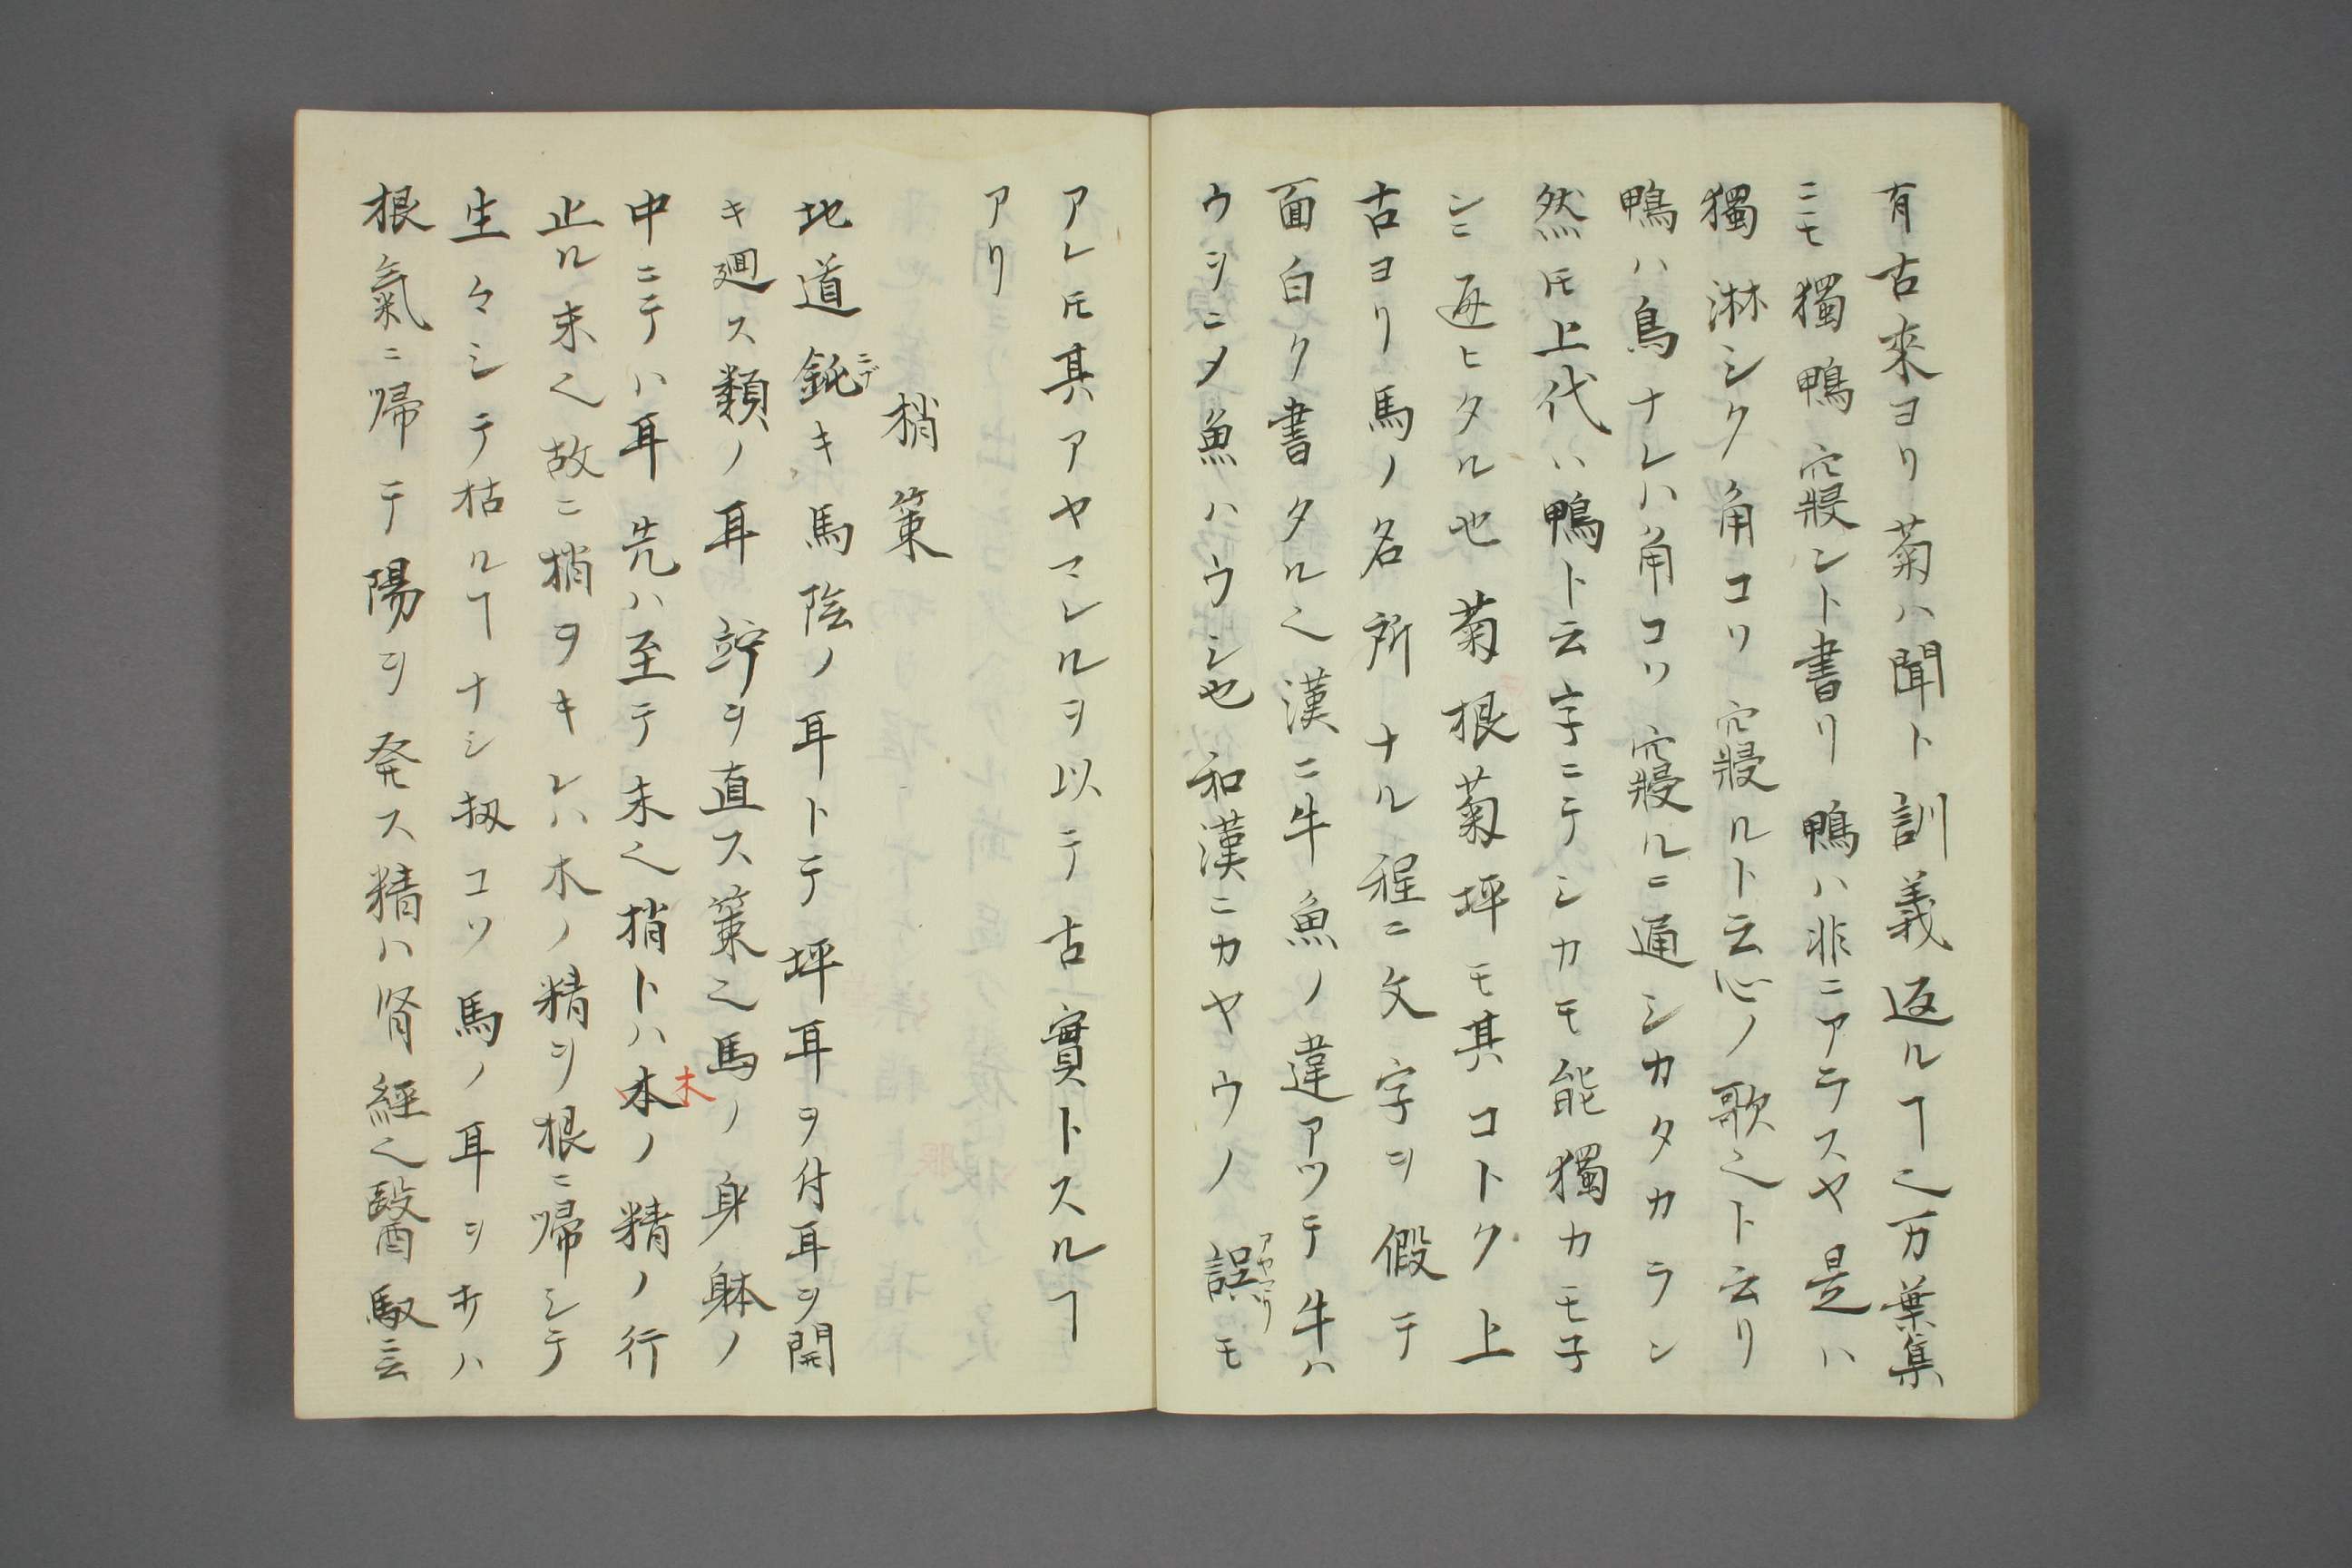 有古來ヨリ菊ハ聞ト訓義返ルヿ也万葉集
ニモ獨鴨寢ント書リ鴨ハ非ニアラスヤ是ハ
獨淋シク角コソ寢ルト云心ノ歌也ト云リ
鴨ハ鳥ナレハ角コソ寢ルニ通シカタカラン
然𪜈上代ハ鴨ト云字ニテシカモ能獨カモ子
ンニ遊ヒタル也菊根菊坪モ其コトク上
古ヨリ馬ノ名所ナル程ニ文字ヲ假テ
面白ク書タル也漢ニ牛魚ノ違アツテ牛ハ
ウヲニメ魚ハウシ也和漢ニカヤウノ誤モ
アヤマリ
アレ𪜈其アヤマレルヲ以テ古實トスルヿ
アリ
梢策
地道鈍キ馬陰ノ耳トテ坪耳ヲ付耳ヲ開
ニブ
キ廻ス類ノ耳竚ヲ直ス策也馬ノ身躰ノ
中ニテハ耳先ハ至テ末也梢トハ本ノ精ノ行
木
止ル末也故ニ梢ヲキレハ木ノ精ヲ根ニ帰シテ
生々シテ枯ルヿナシ扨コソ馬ノ耳ヲキハ
根氣ニ帰テ陽ヲ発ス精ハ腎經也醫馭云